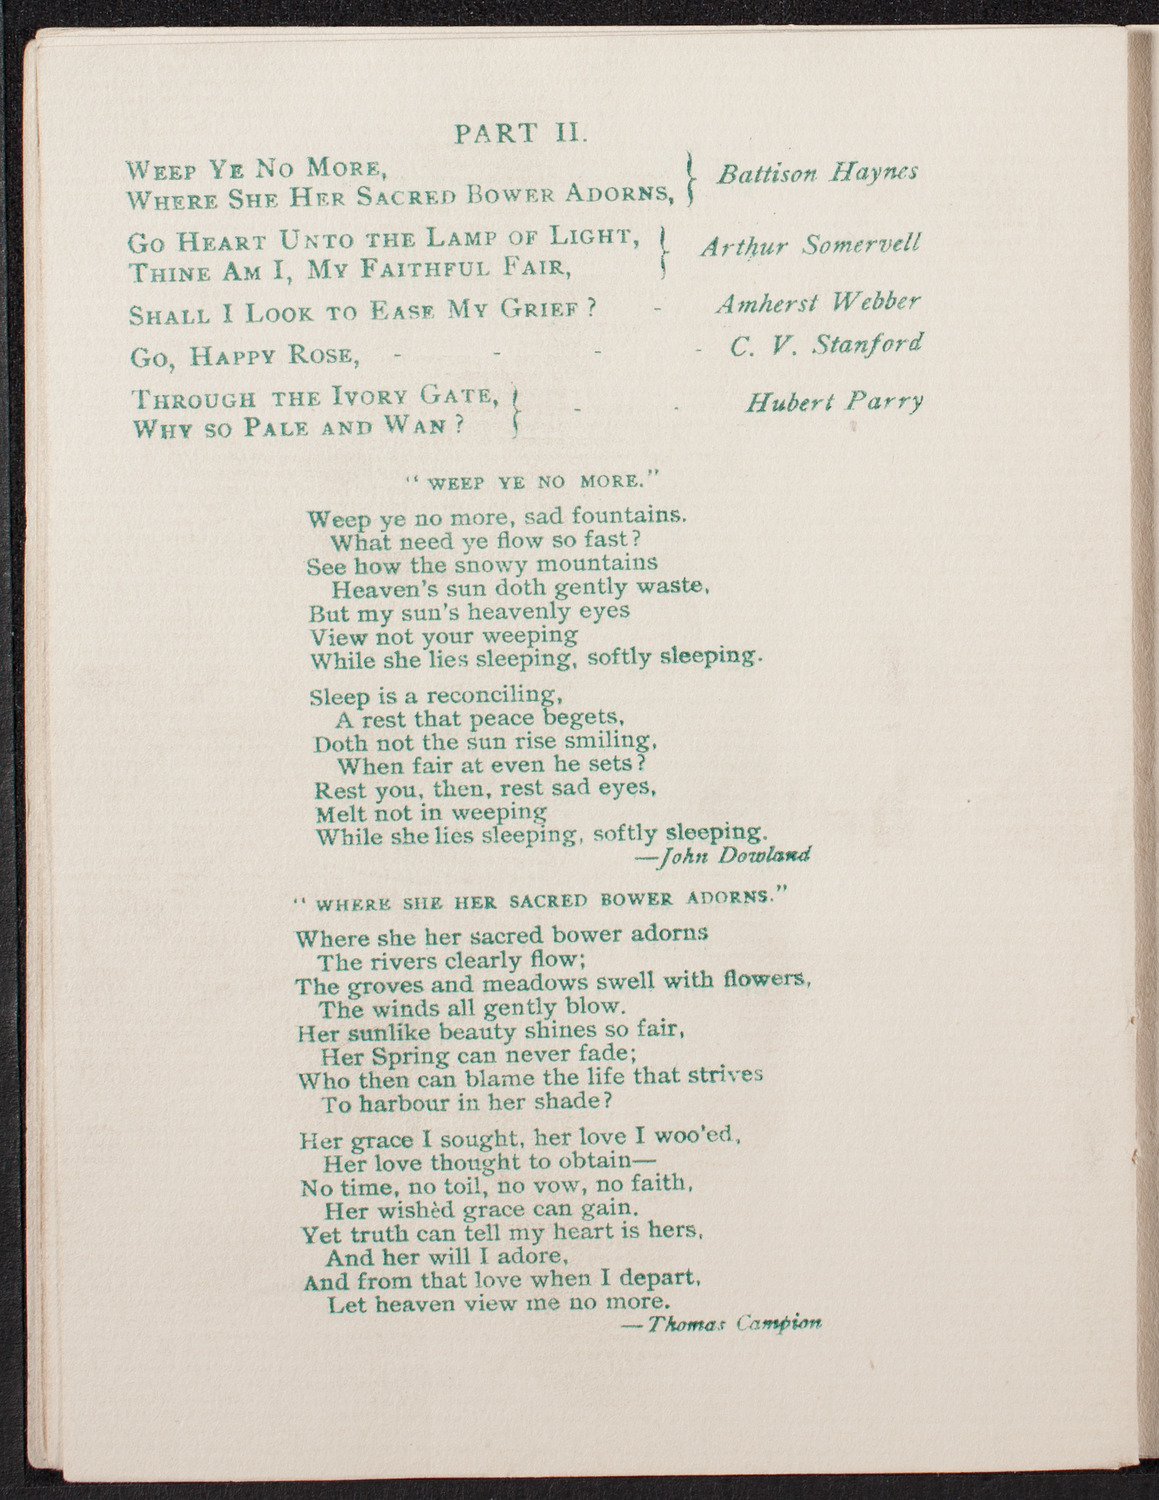 PART II.
WEEP YE NO MORE,
WHERE SHE HER SACRED BOWER ADORNS, } Battison Haynes
GO HEART UNTO THE LAMP OF LIGHT,
THINE AM I, MY FAITHFUL FAIR, } Arthur Somervell
SHALL I LOOK TO EASE MY GRIEF? - Amherst Webber
GO, HAPPY ROSE, - - - - C. V. Stanford
THROUGH THE IVORY GATE,
WHY SO PALE AND WAN? } - - Hubert Parry
"WEEP YE NO MORE."
Weep ye no more, sad fountains.
What need ye flow so fast?
See how the snowy mountains
Heaven's sun doth gently waste,
But my sun's heavenly eyes
View not your weeping
While she lies sleeping, softly sleeping.
Sleep is a reconciling,
A rest that peace begets,
Doth not the sun rise smiling,
When fair at even he sets?
Rest you, then, rest sad eyes,
Melt not in weeping
While she lies sleeping, softly sleeping.
—John Dowland
"WHERE SHE HER SACRED BOWER ADORNS."
Where she her sacred bower adorns
The rivers clearly flow;
The groves and meadows swell with flowers,
The winds all gently blow.
Her sunlike beauty shines so fair,
Her Spring can never fade;
Who then can blame the life that strives
To harbour in her shade?
Her grace I sought, her love I woo'ed,
Her love thought to obtain—
No time, no toil, no vow, no faith,
Her wishèd grace can gain.
Yet truth can tell my heart is hers,
And her will I adore,
And from that love when I depart,
Let heaven view me no more.
—Thomas Campion